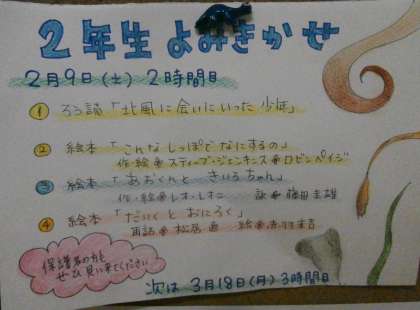 2年生 よみきかせ
2月9日(土) 2時間目
① ろう読「北風に会いにいった少年」
② 絵本「こんなしっぽでなにするの」
作・絵 スティーブ・ジェンキンス ロビン・ペイジ
③ 絵本「あおくんときいろちゃん」
作・絵 レオ・レオニ 訳 藤田圭雄
④ 絵本「だいくとおにろく」
再話 松居直 絵 赤羽末吉
保護者の方も
ぜひ見に来てください
次は 3月18日(月) 3時間目